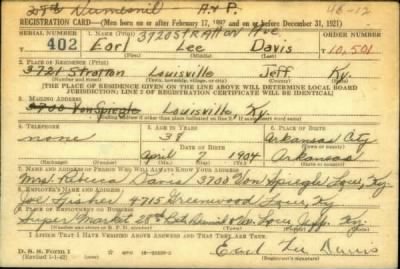 A+P 46-12
REGISTRATION CARD—(Men born on or after February 17, 1897 and on or before December 31, 1921)
SERIAL NUMBER 1. NAME (Print) 3720 STRATTON AVE ORDER NUMBER
402 Earl Lee Davis T10,501
2. PLACE OF RESIDENCE (Print)
3721 Stratton Louisville Jeff. Ky.
(Number and street) (Town, township, village, or city) (County) (State)
[THE PLACE OF RESIDENCE GIVEN ON THE LINE ABOVE WILL DETERMINE LOCAL BOARD
JURISDICTION; LINE 2 OF REGISTRATION CERTIFICATE WILL BE IDENTICAL]
3. MAILING ADDRESS
3700 Von Spiegle Louisville, Ky.
4. TELEPHONE 5. AGE IN YEARS 6. PLACE OF BIRTH
none 38 Arkansas City
DATE OF BIRTH
April 7 1904 Arkansas
7. NAME AND ADDRESS OF PERSON WHO WILL ALWAYS KNOW YOUR ADDRESS
Mrs. Davis 3708 Von Spiegle Lou. Ky.
8. EMPLOYER'S NAME AND ADDRESS
Joe Fisher 4715 Greenwood Lou. Ky.
9. PLACE OF EMPLOYMENT OR BUSINESS
Super Market 28th Lou. Jeff. Ky.
I AFFIRM THAT I HAVE VERIFIED ABOVE ANSWERS AND THAT THEY ARE TRUE.
D. S. S. Form 1
(Revised 1-1-42) Earl Lee Davis
(Registrant's signature)